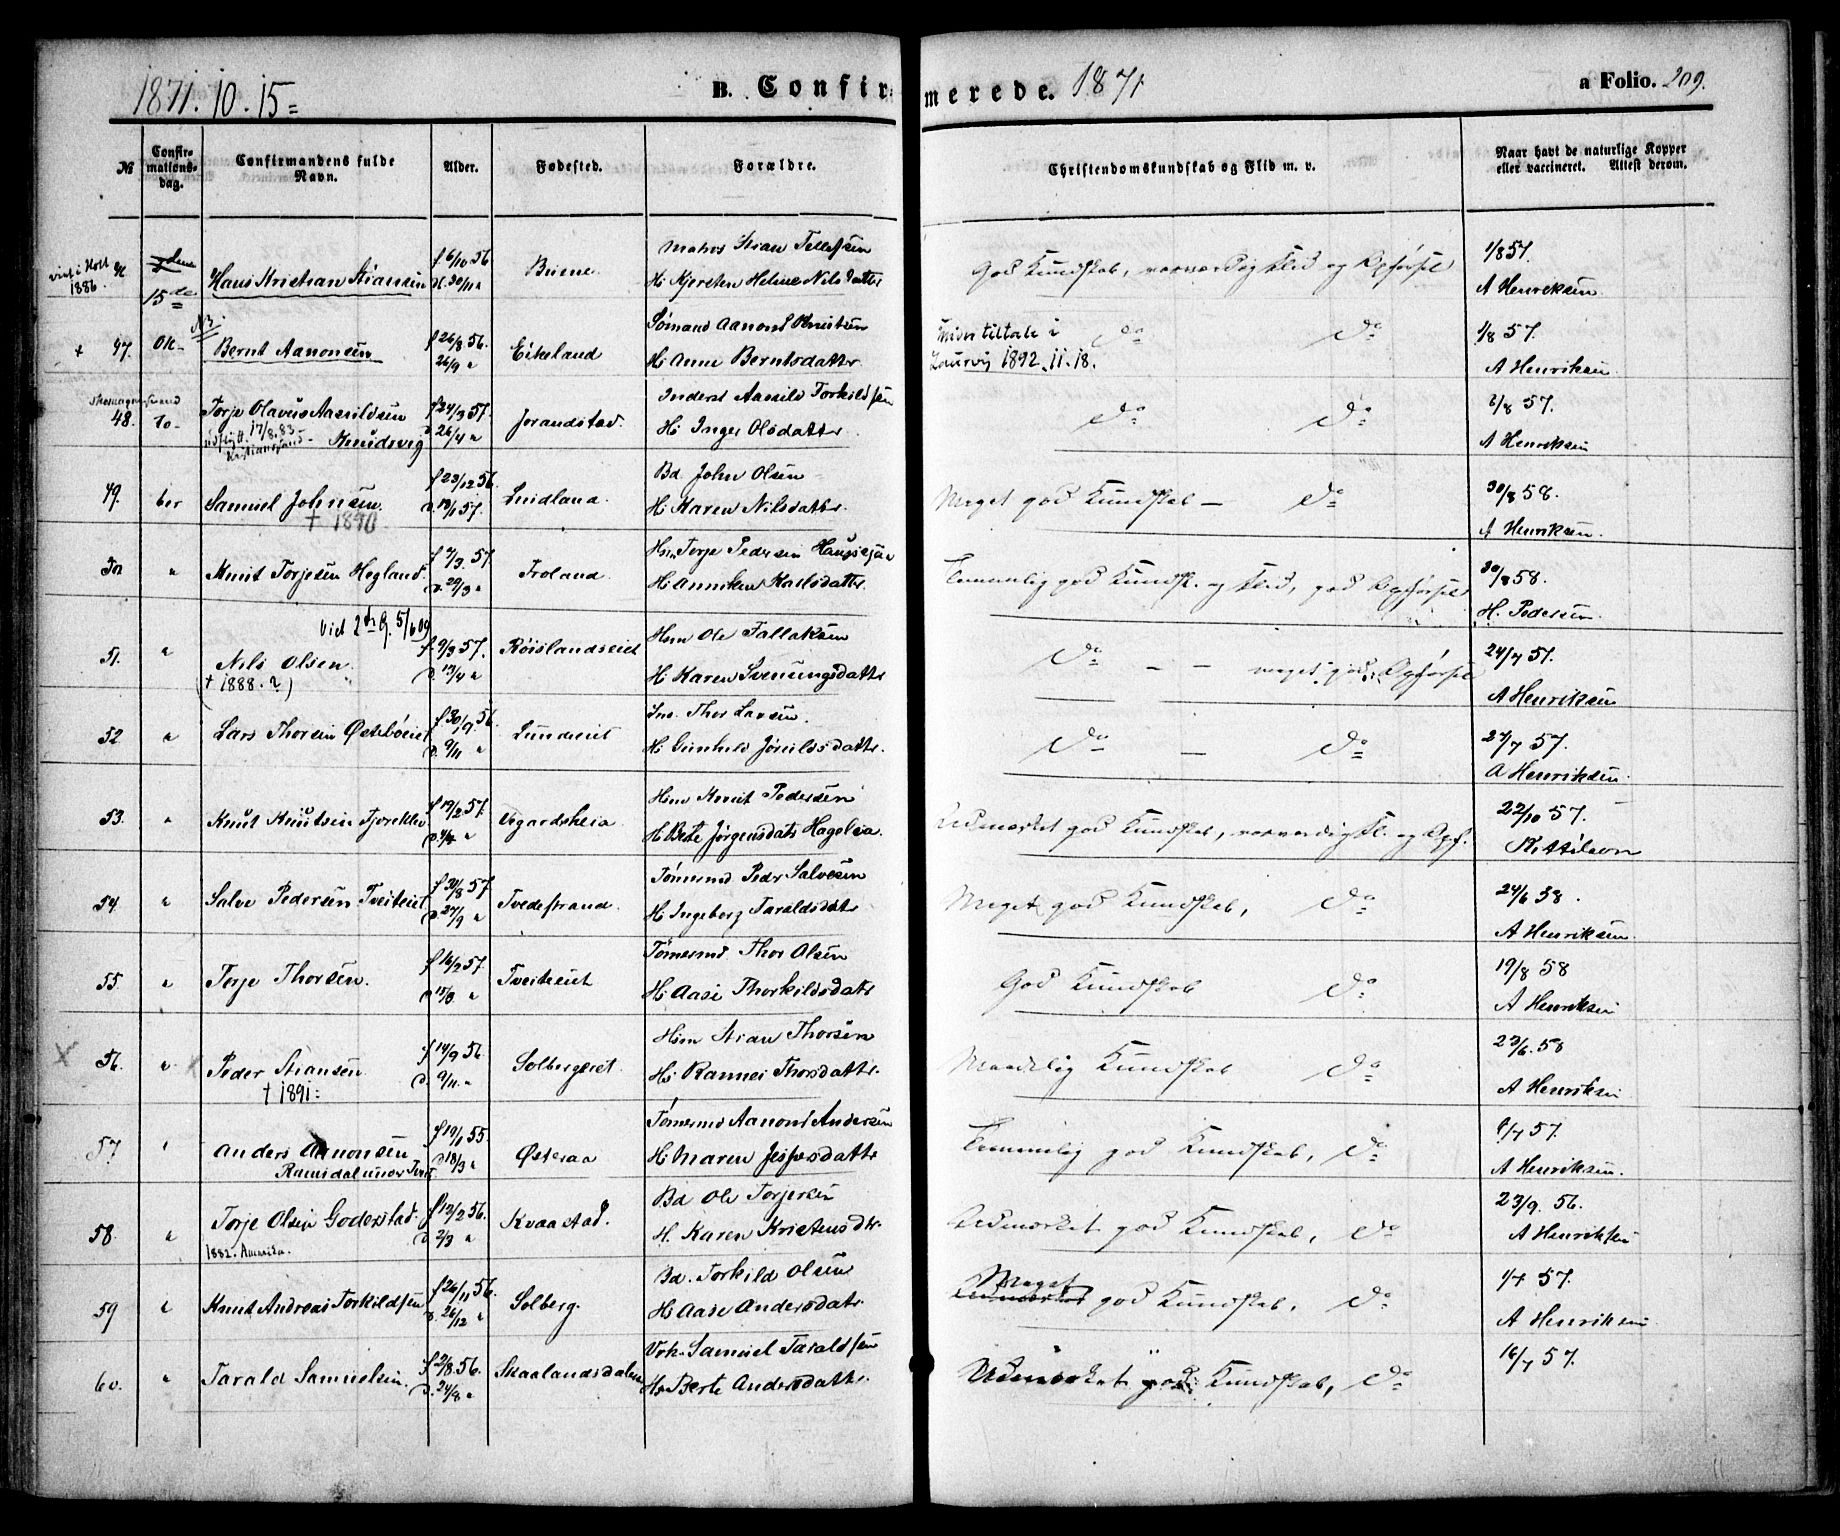 1871. 10. 15 =
B. Confirmerede. 1871
a Folio. 209.
№
Confirmationsdag.
Confirmandens fulde Navn.
Alder.
Fødested.
Forældre.
Christendomskundskab og Flid m. v.
Naar havt de naturlige Kopper eller vaccineret. Attest derom.
1886.
15de
Hans Kristian Stiansen
f 6/10 56
d. 30/11 "
Matros Stian Tellefsen
H. Kjersten Helene Nilsdatter
God Kundskab, rosværdig Flid og Opførsel
1/8 57.
A Henriksen
+ 47. Ok-
Bernt Aanonsen
f 26/8 56.
26/9 "
Eikeland
Sømand Aanond Knutsen
H. Anne Berntsdatter
tiltale i
Laurvig 1892. 11. 18.
do do
1/8 57.
A Henriksen
48. To-
Torje Olavus Aasildsen
17/8. 83
Kristianssand - Knudsvig
f 24/3 57.
d 26/4 "
Jorandstad.
Inderst Aasild Torkildsen
H. Inger Olsdatter
do do
1/8 57.
A Henriksen
49. ber
Samuel Johnsen.
† 1870
f 23/12 56.
Lindland.
Bd. John Olsen
H. Karen Nilsdatter
Meget god Kundskab - do
30/8 58.
A Henriksen.
50 "
Knut Torjesen Hegland.
f 2/3. 57.
d. 29/3 "
Froland.
Hm Torje Pedersen Haugsjaa
H Anniken Karlsdatter.
Temmelig god Kundsk. og Flid, god Opførsel
30/8 58.
H. Pedersen
51. "
Nils Olsen.
(† 1888. )
f 9/3 57.
d. 13/4 "
Røislandseiet
Hm Ole Fallaksen
H. Karen Svenungsdatter
do - - meget god Opførsel
24/7 57.
A Henriksen
52 "
Lars Thorsen Østebøeiet
f 30/9. 56.
d. 9/11 "
Lundeeiet
Ins. Thor Larsen.
H Gunhild Jørulsdatter.
do - do
27/7 57.
A Henriksen.
53. "
Knut Knutsen Tjoreklev
f 19/2 57.
Vegardsheia
Hm Knut Pedersen
H Berte Jørgensdatr Hagelia.
Udmærket god Kundskab, rosværdig Fl. og Opf.
22/10 57.
Kittilsen
54. "
Salve Pedersen Tveiteiet
f 30/8 57.
d 27/9 "
Tvedestrand.
Tømermd Peder Salvesen
H Ingeborg Taraldsdatr
Meget god Kundskab, do
24/6 58.
A Henriksen.
55. "
Terje Thorsen.
f 16/2 57.
d 15/3 "
Tveiteeiet
Tømermd Thor Olsen
H. Aase Thorkildsdatr
God Kundskab do
19/8 58
A Henriksen
X 56. "
Peder Stiansen.
† 1891 =
f 14/9 56
d. 9/11 "
Solbergeiet.
Hm Stian Thorsen
H. Rannei Thorsdatter.
Maadelig Kundskab do
23/6. 58
A Henriksen
57. "
Anders Aanonsen
f 19/1 55.
d 18/3 "
Østeraa
Tømermd Aanond Andersen
H. Maren Jespersdatter
Temmelig god Kundskab, do
8/7 57.
A Henriksen.
58. "
Torje Olsen Goderstad.
1882. Amerika.
f 13/2 56.
d 2/3 "
Kvaastad.
Bd Ole Torjersen
H. Karen Kristensdtr.
Udmærket god Kundskab, do
23/9. 56.
A Henriksen
59 "
Knut Andreas Torkildsen
f 26/11 56.
d. 26/12 "
Solberg.
Bd. Torkild Olsen
H. Aase Andersdatr.
Meget god Kundskab, do
1/7 57.
A Henriksen
60. "
Tarald Samuelsen.
f 2/8 56.
d. 24/8 "
Skaalandsdalen
Samuel Taraldsen
H. Berte Andersdatter.
Udmærket god Kundskab, do
16/7 57.